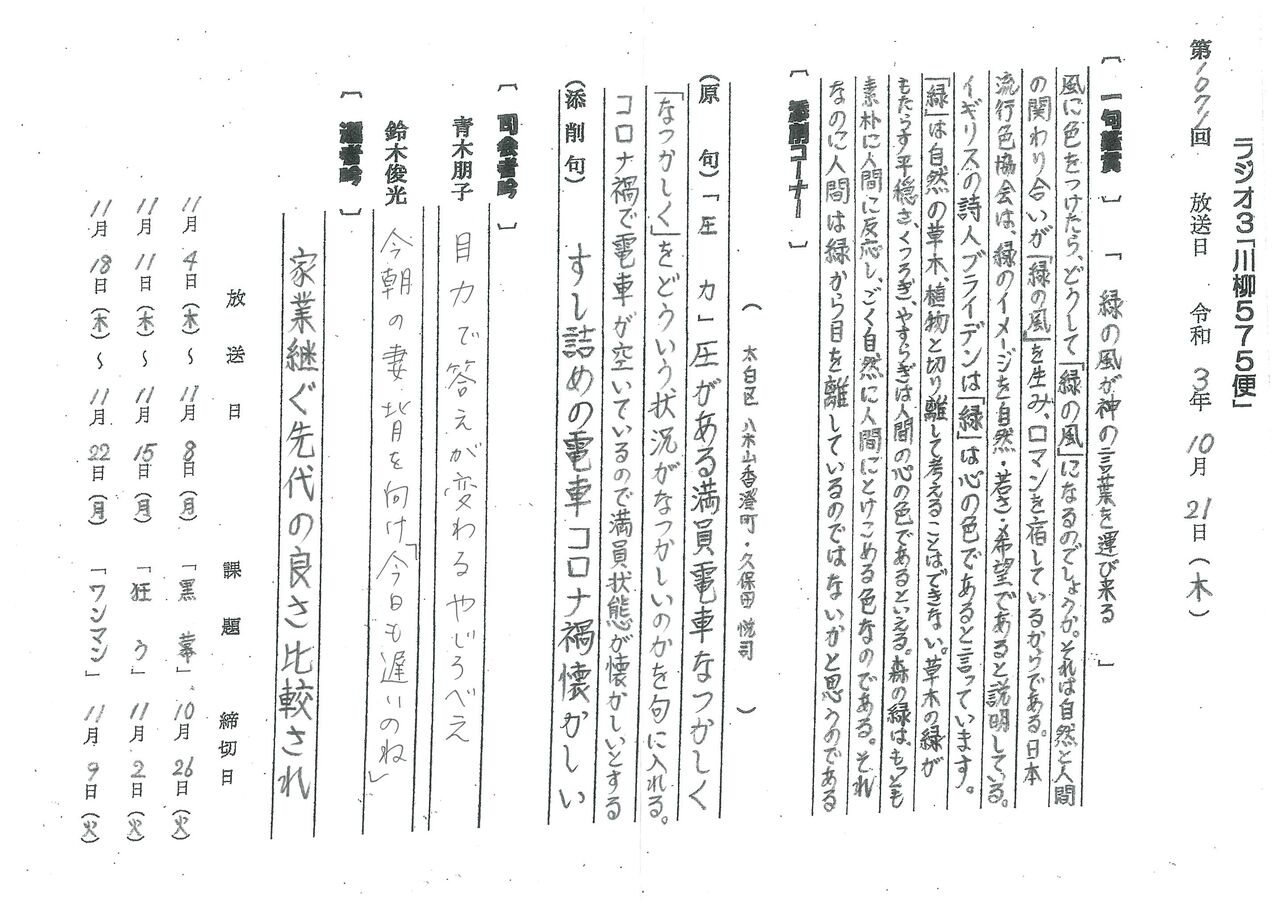 ラジオ3「川柳575便」
第1071回 放送日 令和 3年 10月 21日(木)
〔 一句鑑賞 〕 「 緑の風が神の言葉を運び来る 」
風に色をつけたら、どうして「緑の風」になるのでしょうか。それは自然と人間
の関わり合いが「緑の風」を生み、ロマンを宿しているからである。日本
流行色協会は、緑のイメージを自然・若さ・希望であると説明している。
イギリスの詩人ブライデンは「緑」は心の色であると言っています。
「緑」は自然の草木、植物と切り離して考えることはできない。草木の緑が
もたらす平穏さ、くつろぎ、やすらぎは人間の心の色であるといえる。森の緑は、もっとも
素朴に人間に反応し、ごく自然に人間にとけこめる色なのである。それ
なのに人間は緑から目を離しているのではないかと思うのである
〔 添削コーナー 〕
( 太白区 八木山香澄町・久保田 悦司 )
(原 句)「圧 力」圧がある満員電車なつかしく
「なつかしく」をどういう状況がなつかしいのかを句に入れる。
コロナ禍で電車が空いているので満員状態が懐かしいとする
(添削句) すし詰めの電車コロナ禍懐かしい
〔 司会者吟 〕
青木朋子 目力で答えが変わるやじろべえ
鈴木俊光 今朝の妻背を向け「今日も遅いのね」
〔 選者吟 〕
家業継ぐ先代の良さ比較され
放送日 課題 締切日
11月 4日(木)～11月 8日(月) 「黒 幕」 10月 26日(火)
11月 11日(木)～11月 15日(月) 「狂 う」 11月 2日(火)
11月 18日(木)～11月 22日(月) 「ワンマン」 11月 9日(火)